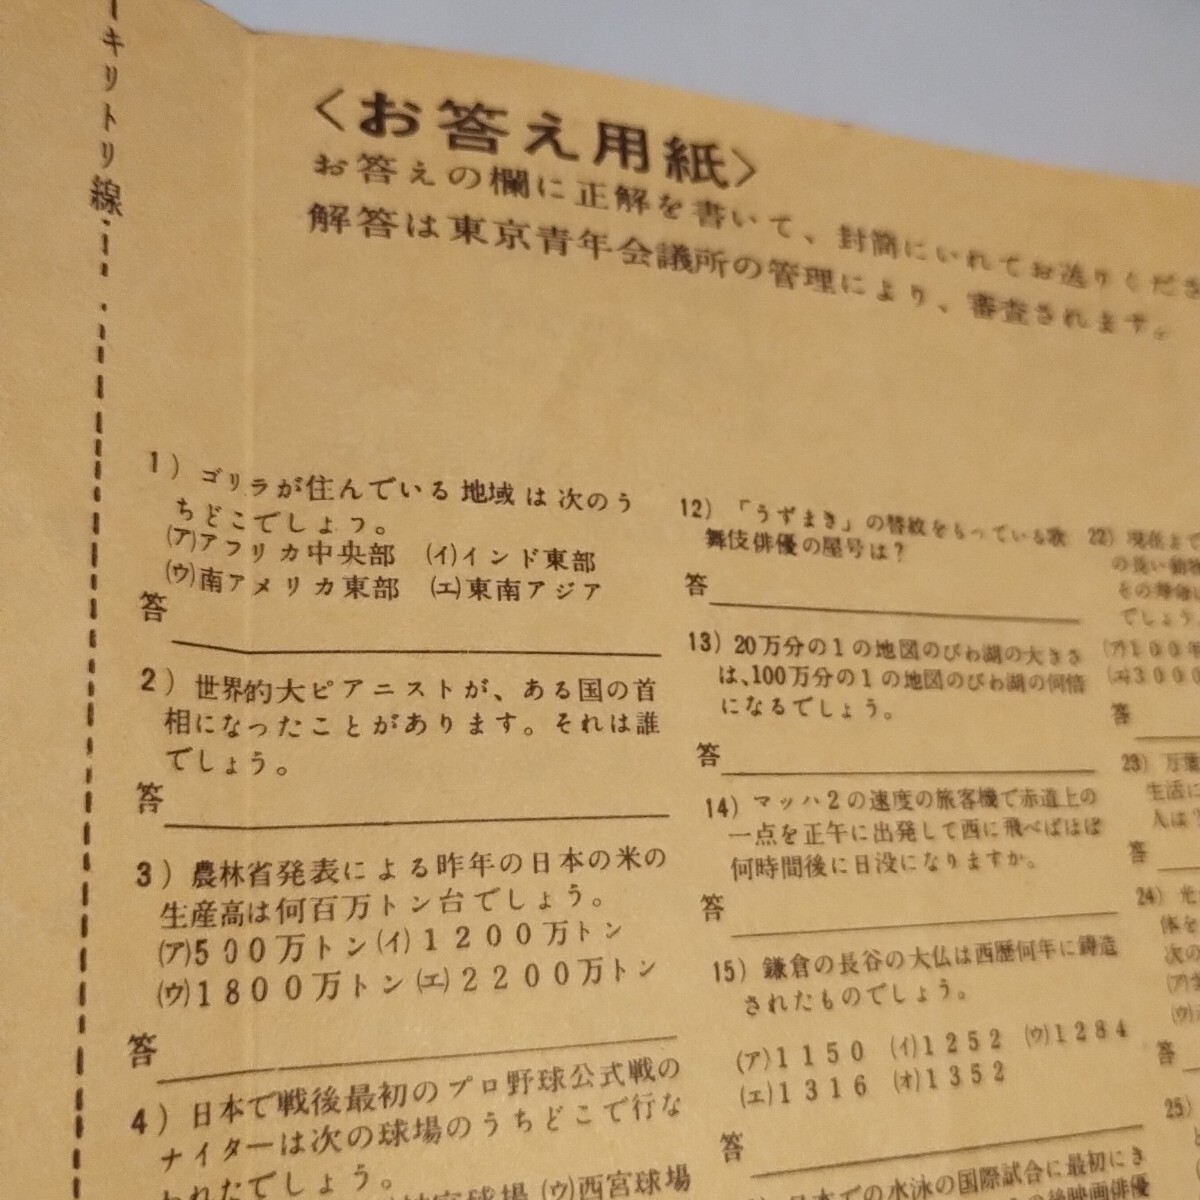 キリトリ線
<お答え用紙>
お答えの欄に正解を書いて、封筒にいれてお送りくださ
解答は東京青年会議所の管理により、審査されます。
1) ゴリラが住んでいる地域は次のう
ちどこでしょう。
(ア)アフリカ中央部 (イ)インド東部
(ウ)南アメリカ東部 (エ)東南アジア
答
2) 世界的大ピアニストが、ある国の首
相になったことがあります。それは誰
でしょう。
答
3) 農林省発表による昨年の日本の米の
生産高は何百万トン台でしょう。
(ア)500万トン(イ)1200万トン
(ウ)1800万トン(エ)2200万トン
答
4) 日本で戦後最初のプロ野球公式戦の
ナイターは次の球場のうちどこで行な
われたでしょう。
球場 (ウ)西宮球場
12) 「うずまき」の替紋をもっている歌
舞伎俳優の屋号は?
答
13) 20万分の1の地図のびわ湖の大きさ
は、100万分の1の地図のびわ湖の何倍
になるでしょう。
答
14) マッハ2の速度の旅客機で赤道上の
一点を正午に出発して西に飛べばほぼ
何時間後に日没になりますか。
答
15) 鎌倉の長谷の大仏は西歴何年に鋳造
されたものでしょう。
(ア)1150 (イ)1252 (ウ)1284
(エ)1316 (オ)1352
答
日本での水泳の国際試合に最初にき
後映画俳優
22) 現在まで
の長い動物
その寿命は
でしょう。
(ア)100年
(エ)3000
答
23) 万葉
生活に
人は?
答
24) 光
体を
次の
(ア)
(ウ)
答
25)